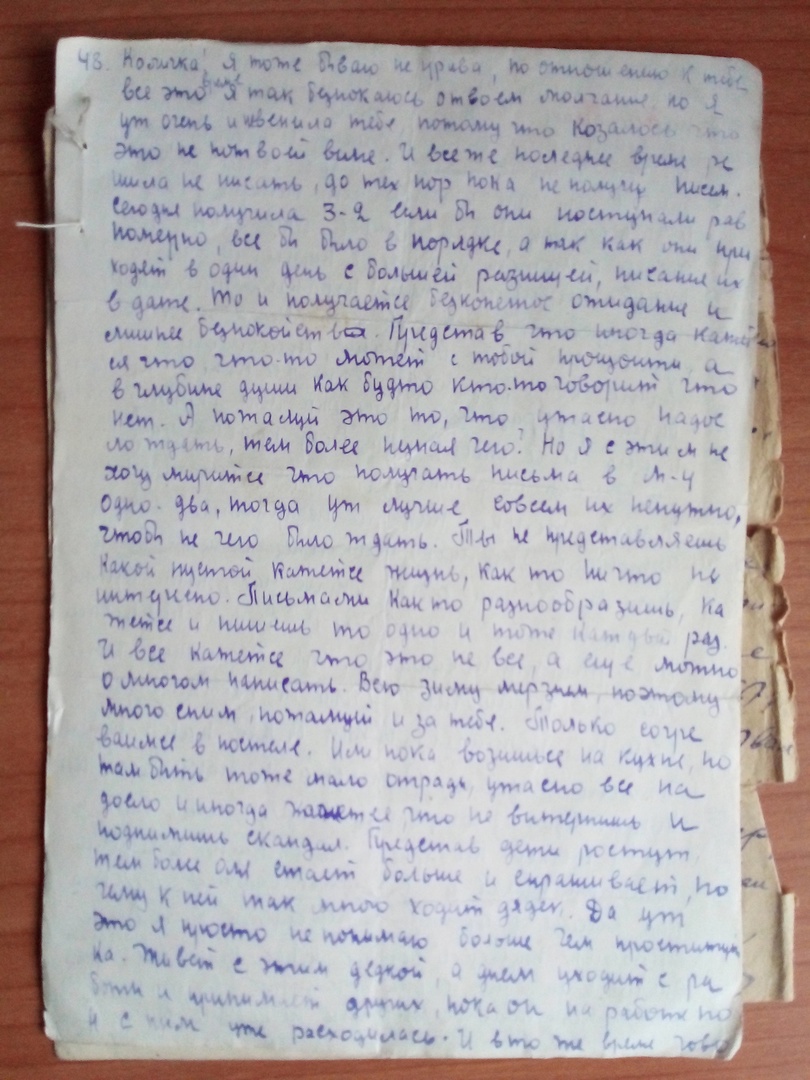 43. Количка! я тоже бываю не права, по отношению к тебе
все это время я так безпокаюсь о твоем молчание, но я
уж очень и не винила тебя, потому что козалось что
это не по твоей вине. И все же последнее время ре
шила не писать, до тех пор пока не получу писем.
Сегодня получила 3-2 если би они поступали рав
номерно, все би било в порядке, а так как они при
ходят в один день с большей разницей, писания их
в дате. То и получаетсе безконетное ожидание и
лишнее безпокойства. Представ что иногда кажет
ся что, что-то может с тобой произойти, а
в глубине души как будто кто-то говорит что
нет. А пожалуй это то, что ужасно надое
ло ждать, тем более незная чего? Но я с этим не
хочу миритсе что получать письма в м-ц
одно-два, тогда уж лучше совсем их ненужно,
чтоби не чего било ждать. Ты не представляешь
какой пустой кажетсе жизнь, как то ничто не
интересно. Письмами как то разнообразишь, ка
жетсе и пишешь то одно и тоже каждый раз.
И все кажетсе что это не все, а еще можно
о многом написать. Всю зиму мерзнем, поэтому
много спим, пожалуй и за тебя. Только согре
ваимсе в постеле. Или пока возишьсе на кухне, но
там бить тоже мало отради, ужасно все на
доело и иногда кажетсе что не витерпишь и
поднимишь скандал. Представ дети ростут
тем боле оля стает больше и спрашивает, по
чему к ней так много ходит дядей. Да уж
это я просто не понимаю больше чем проститут
ка. Живет с этим дедкой, а днем уходит с ра
боти и принимает других, пока он на работе но
и с ним уже расходилась. И в то же время гово